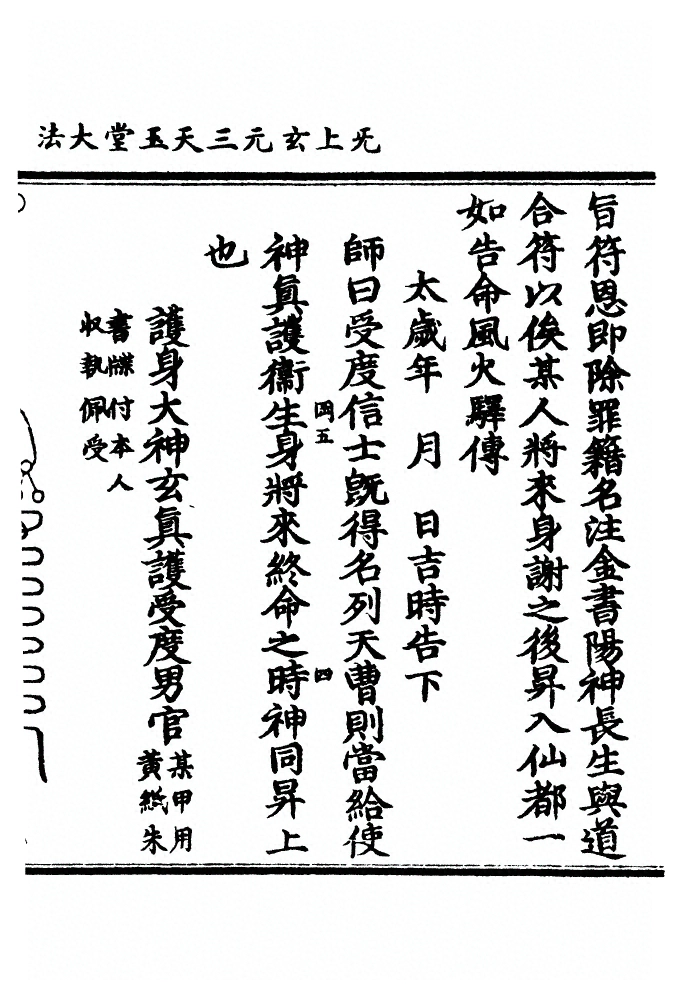 法大堂玉天三元玄上旡
旨符恩即除罪籍名注金書陽神長生與道
合符以俟某人將來身謝之後昇入仙都一
如告命風火驛傳
太歲年 月 日吉時告下
師曰受度信士旣得名列天曹則當給使
神眞護衞生身將來終命之時神同昇上
也
護身大神玄眞護受度男官某甲用黃紙朱
書牒付本人
收執佩受